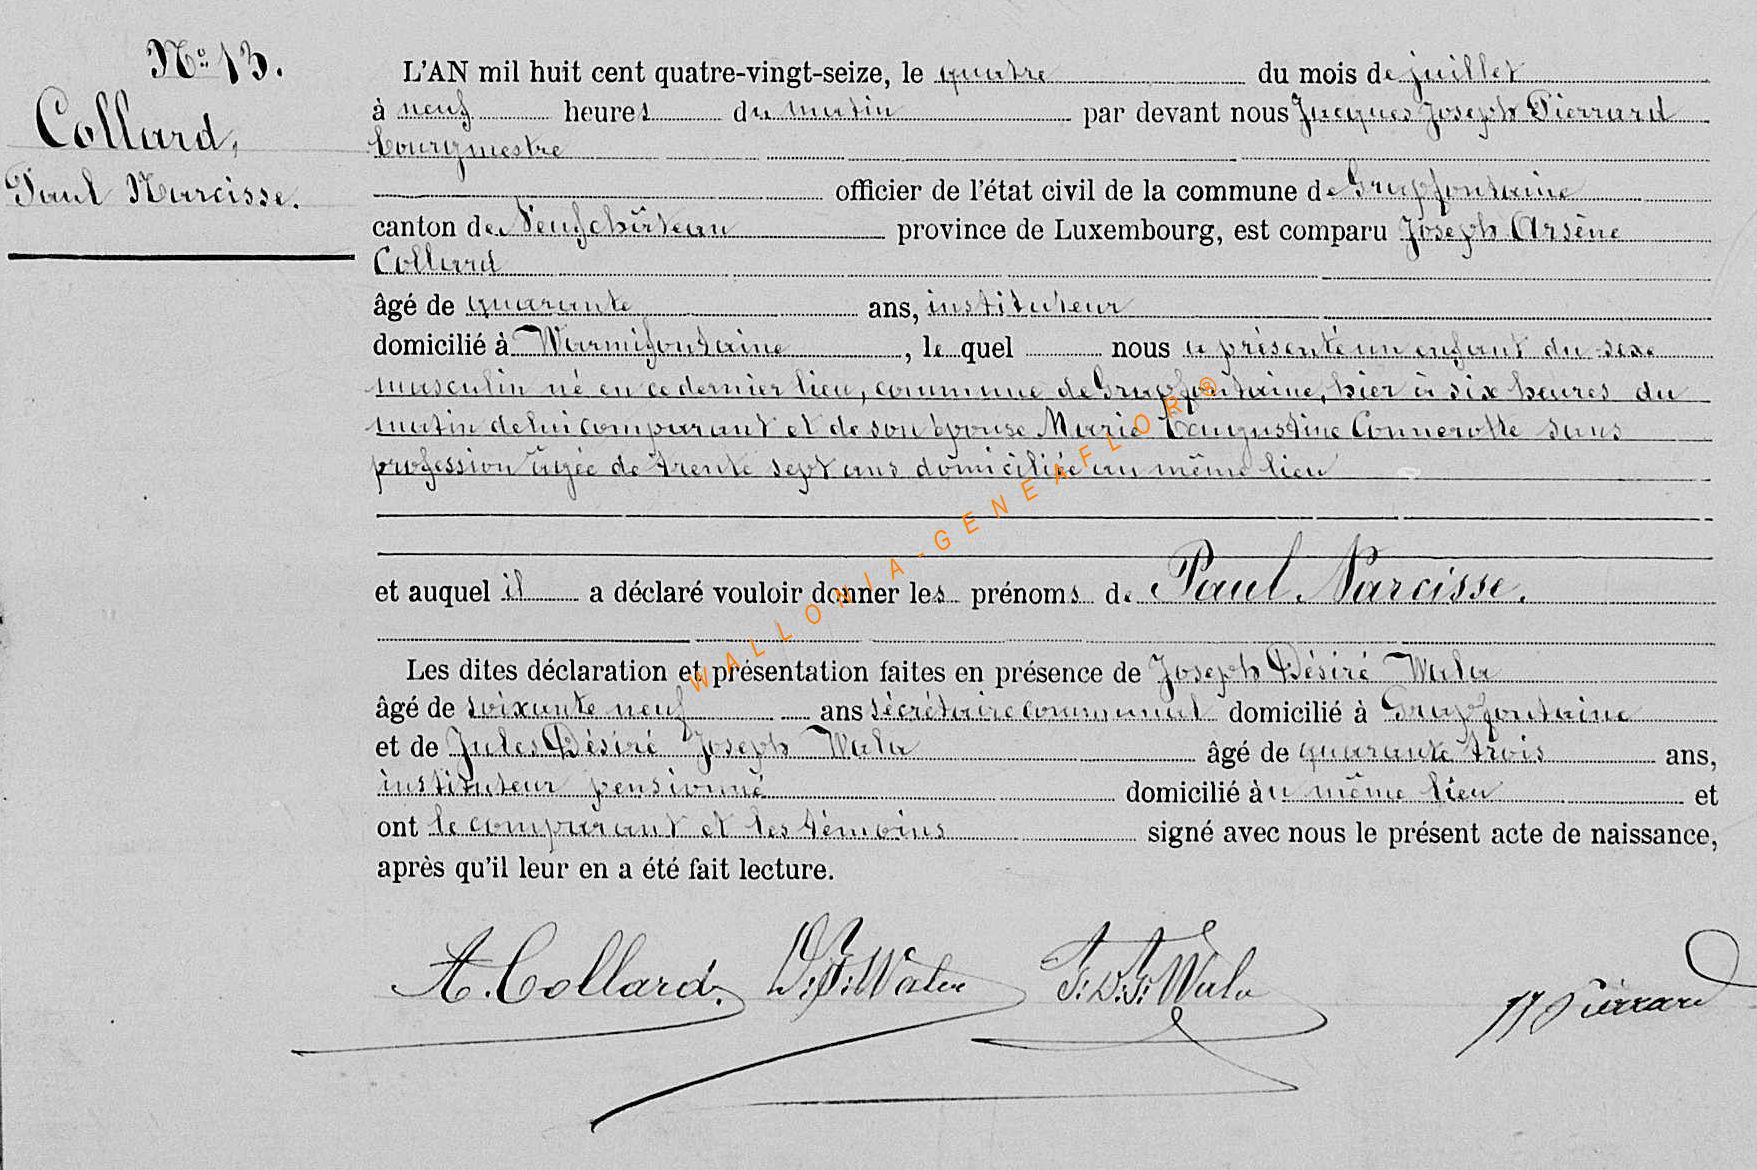 N° 13.
Collard,
Paul Narcisse.
L'AN mil huit cent quatre-vingt-seize, le quatre du mois de juillet
à neuf heures du matin par devant nous Jacques Joseph Pierrard
bourgmestre
officier de l'état civil de la commune de Grapfontaine
canton de Neufchâteau province de Luxembourg, est comparu Joseph Arsène
Collard
âgé de quarante ans, instituteur
domicilié à Warmifontaine, le quel nous a présenté un enfant du sexe
masculin né en ce dernier lieu, commune de Grapfontaine, hier à six heures du
matin de lui comparant et de son épouse Marie Connerotte sans
profession âgée de trente sept ans domiciliée au même lieu
et auquel il a déclaré vouloir donner les prénoms de Paul Narcisse.
Les dites déclaration et présentation faites en présence de Joseph Désiré Wala
âgé de soixante neuf ans sécrétaire communal domicilié à Grapfontaine
et de Jules Désiré Joseph Wala âgé de quarante trois ans,
instituteur pensionné domicilié au même lieu et
ont le comparant et les témoins signé avec nous le présent acte de naissance,
après qu'il leur en a été fait lecture.
A. Collard. Wala J. D. J. Wala JJ Pierrard
WALLONIA-GENEAFLOR®